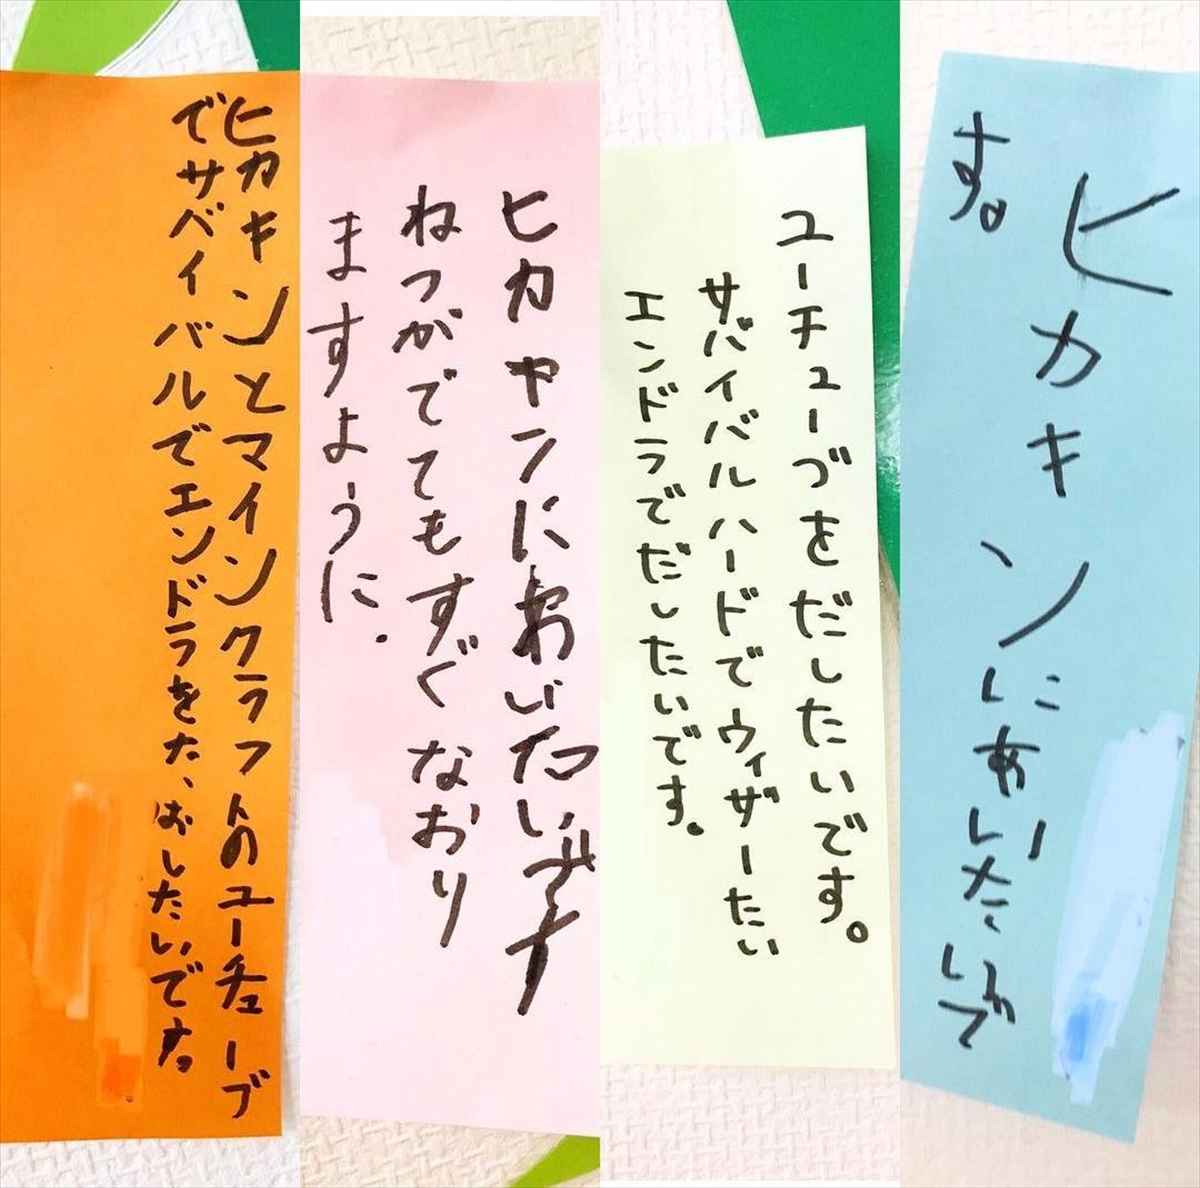 ヒカキンにあいたいで
す。
ユーチューづをだしたいです。
サバイバルハードでウィザーたい
エンドラでだしたいです。
ヒカキンにあいたいです
ねつがでてもすぐなおり
ますように.
ヒカキンとマインクラフトのユーチューブ
でサバイバルでエンドラをた、おしたいです。